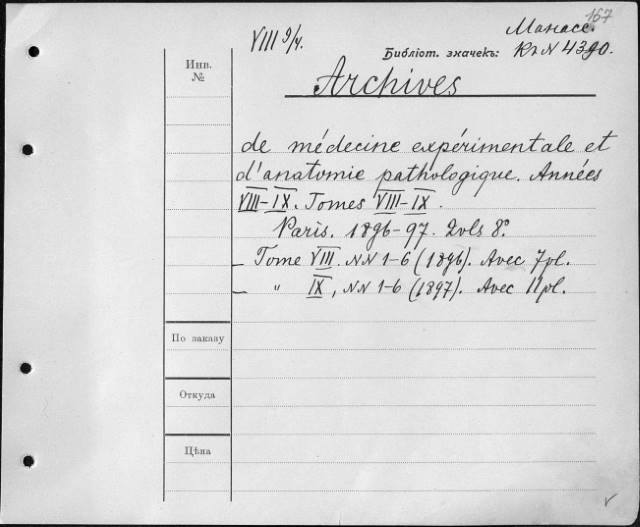 167
VIII 9/4.
Манасс.
Библіот. значекъ: Къ N 4390.
Инв.
№
Archives
de médecine expérimentale et
d'anatomie pathologique. Années
VIII–IX. Tomes VIII–IX.
Paris. 1896–97. 2 vls 8°.
– Tome VIII. NN 1–6 (1896). Avec 7 pl.
– " IX, NN 1–6 (1897). Avec 11 pl.
По заказу
Откуда
Цѣна